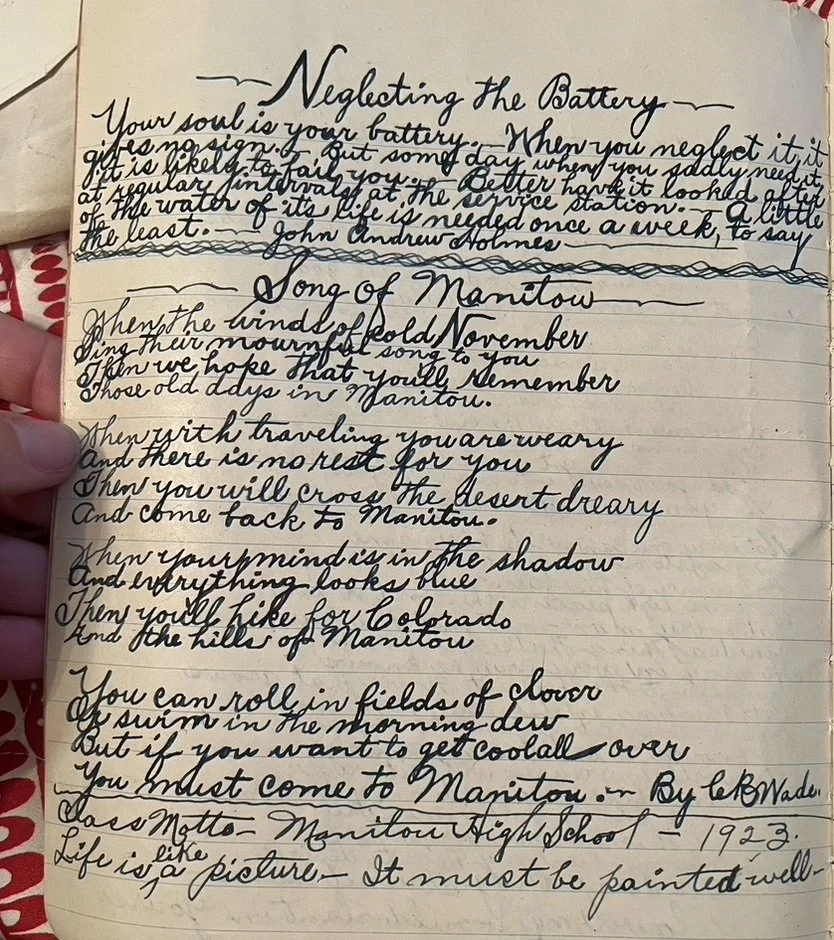 Neglecting the Battery
Your soul is your battery.— When you neglect it, it
gives no sign.— But some day when you sadly need it,
it is likely to fail you.— Better have it looked after
at regular intervals at the service station.— A little
of the water of its life is needed once a week, to say
the least.— John Andrew Holmes—
Song of Manitou
When the winds of cold November
Sing their mournful song to you
Then we hope that you'll remember
Those old days in Manitou.
When with traveling you are weary
And there is no rest for you
Then you will cross the desert dreary
And come back to Manitou.
When your mind is in the shadow
And everything looks blue
Then you'll hike for Colorado
And the hills of Manitou
You can roll in fields of clover
Or swim in the morning dew
But if you want to get cool all over
You must come to Manitou.— By C.B. Wade.
Class Motto— Manitou High School — 1923.
Life is like a picture— It must be painted well—